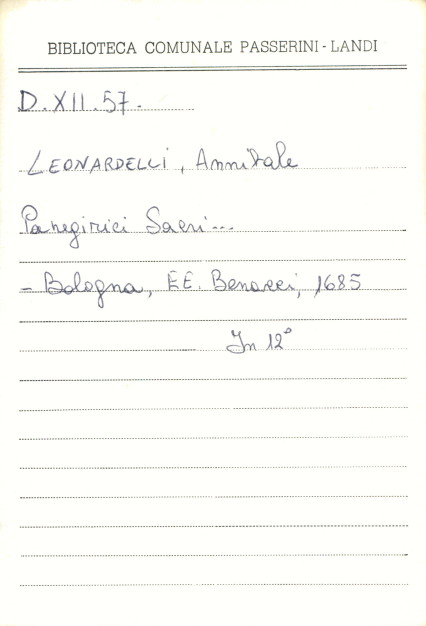 BIBLIOTECA COMUNALE PASSERINI - LANDI
D.XII.57.
LEONARDELLI, Annibale
Panegirici Sacri...
- Bologna, EE. Benacci, 1685
In 12°